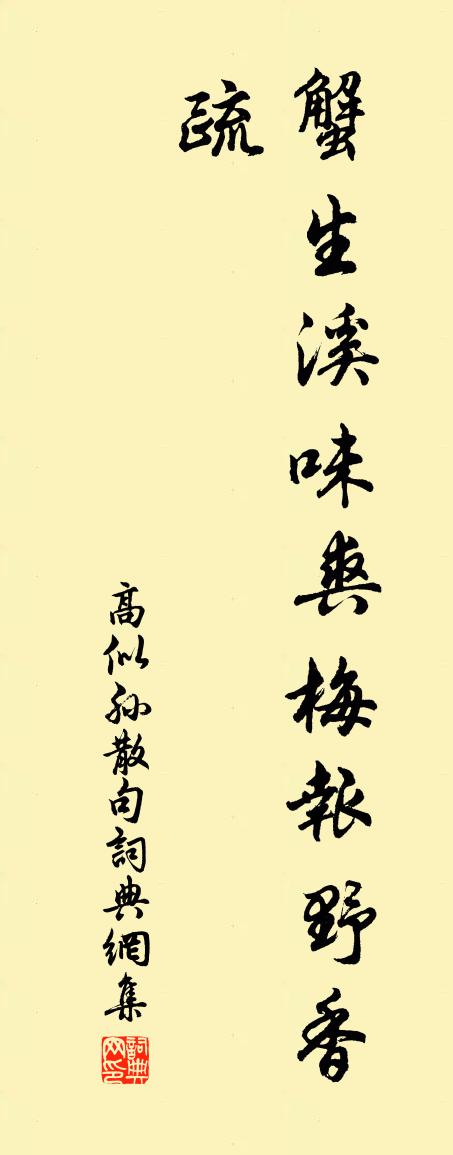 蟹生溪味爽梅報野香
疏
高似孙散句詞典網集
詞典
网印